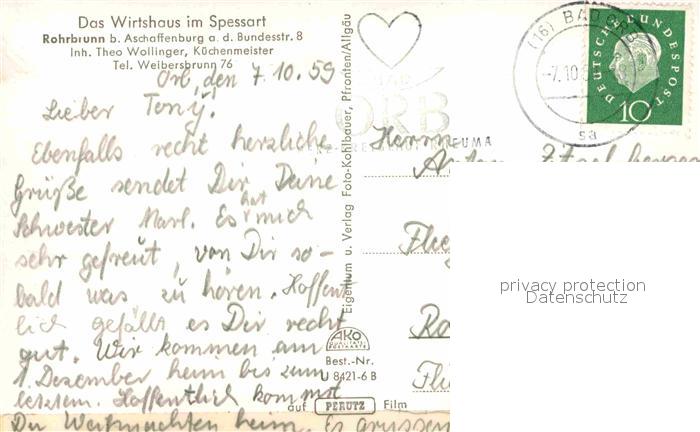 Das Wirtshaus im Spessart
Rohrbrunn b. Aschaffenburg a. d. Bundesstr. 8
Inh. Theo Wollinger, Küchenmeister
Tel. Weibersbrunn 76
Orb, den 7.10.59
Lieber Tony!
Ebenfalls recht herzliche
Grüße sendet Dir Deine
Schwester Marl. Es hat mich
sehr gefreut, von Dir so-
bald was zu hören. Hoffent
lich gefällt es Dir recht
gut. Wir kommen am
1. Dezember heim bis zum
letztem. Hoffentlich kommst
Du Weihnachten heim. Es grüssen
Eigentum u. Verlag Foto-Kohlbauer, Pfronten/Allgäu
AKO
Best.-Nr.
U 8421-6 B
auf PERUTZ Film
BAD
ORB
RHEUMA
(16) BAD ORB
-7.10.
sa
DEUTSCHE BUNDESPOST
10
Herrn
Anton
Flie
Ro
Fli
privacy protection
Datenschutz